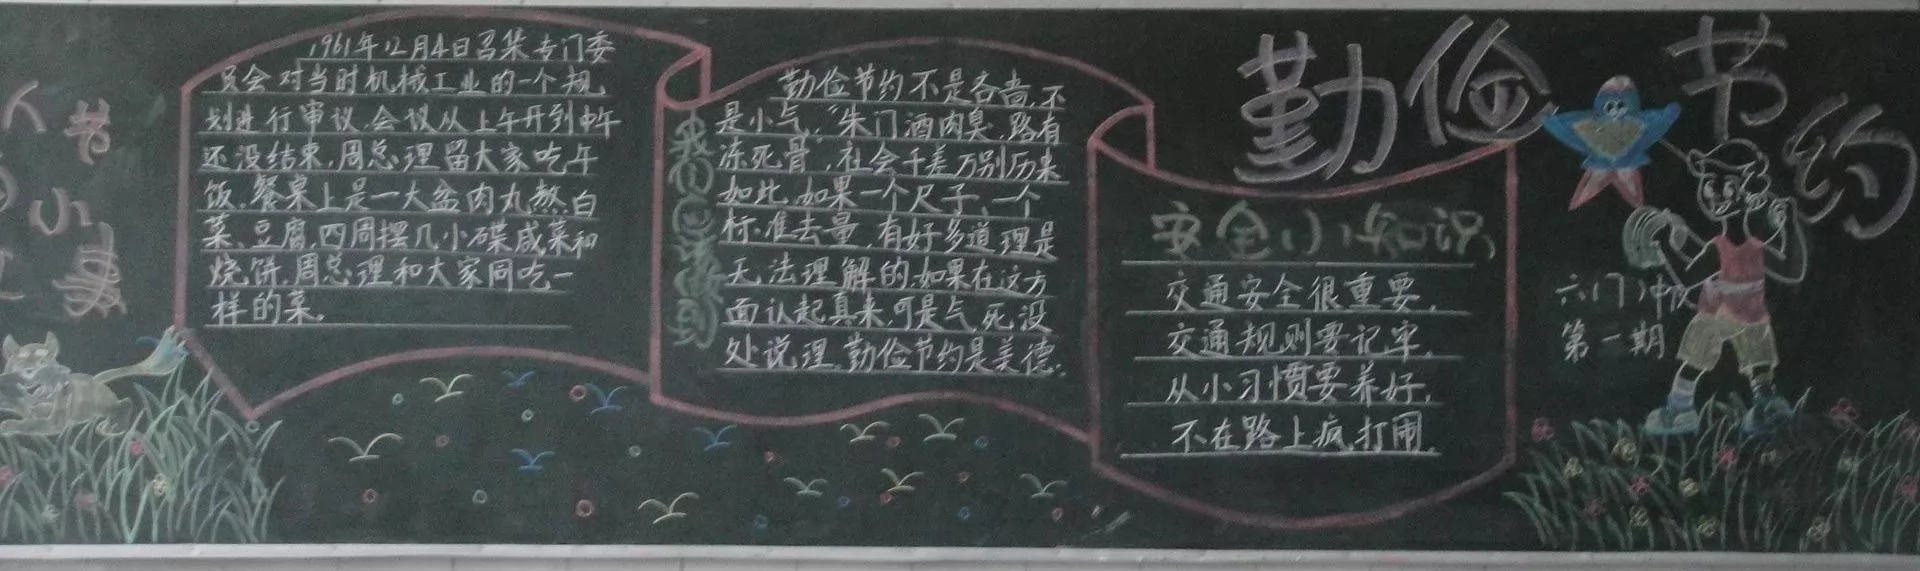 人节
小
事
1961年12月4日召集专门委
员会对当时机械工业的一个规
划进行审议,会议从上午开到中午
还没结束,周总理留大家吃午
饭,餐桌上是一大盆肉丸熬白
菜、豆腐,四周摆几小碟咸菜和
烧饼,周总理和大家同吃一
样的菜。
我们应该做到
勤俭节约不是吝啬,不
是小气,“朱门酒肉臭,路有
冻死骨”,社会千差万别历来
如此,如果一个尺子、一个
标准去量,有好多道理是
无法理解的,如果在这方
面认起真来,可是气死没
处说理,勤俭节约是美德.
勤俭节约
安全小知识
交通安全很重要,
交通规则要记牢,
从小习惯要养好,
不在路上疯打闹.
六(1)中队
第一期